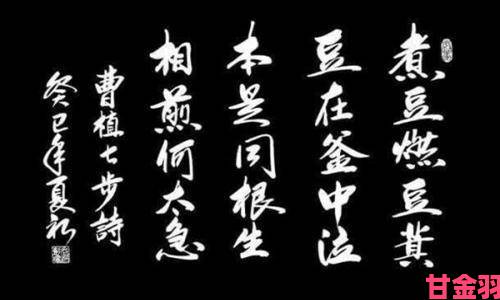 煮豆燃豆萁
豆在釜中泣
本是同根生
相煎何太急
曹植七步詩
癸巳年夏初
甘金羽